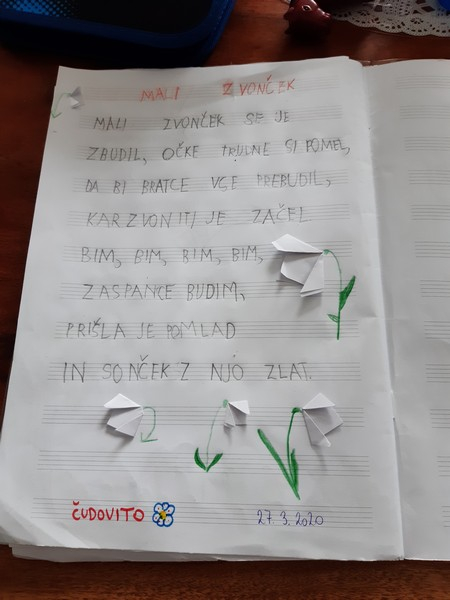 MALI ZVONČEK
MALI ZVONČEK SE JE
ZBUDIL, OČKE TRUDNE SI POMEL,
DA BI BRATCE VSE PREBUDIL,
KAR ZVONITI JE ZAČEL
BIM, BIM, BIM, BIM,
ZASPANCE BUDIM,
PRIŠLA JE POMLAD
IN SONČEK Z NJO ZLAT.
ČUDOVITO
27. 3. 2020